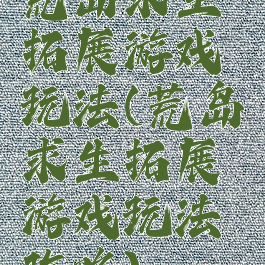 荒岛求生
拓展游戏
玩法(荒岛
求生拓展
游戏玩法